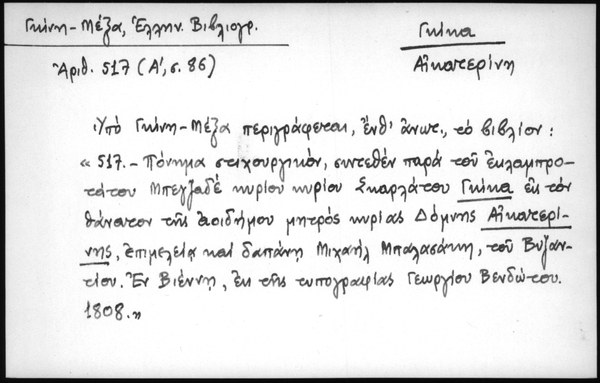 Γκίνη-Μέξα, Ἑλλην. Βιβλιογρ.
Γκίκα
Ἀριθ. 517 (Α΄, σ. 86)
Αἰκατερίνη
Ὑπὸ Γκίνη-Μέξα περιγράφεται, ἔνθ' ἄνωτ., τὸ βιβλίον:
« 517. – Πόνημα στιχουργικόν, συντεθὲν παρὰ τοῦ ἐκλαμπρο-
τάτου Μπεγζαδὲ κυρίου κυρίου Σκαρλάτου Γκίκα εἰς τὸν
θάνατον τῆς ἀοιδήμου μητρὸς κυρίας Δόμνης Αἰκατερί-
νης, ἐπιμελείᾳ καὶ δαπάνῃ Μιχαὴλ Μπαλασάκη, τοῦ Βυζαν-
τίου. Ἐν Βιέννῃ, ἐκ τῆς τυπογραφίας Γεωργίου Βενδώτου.
1808.»